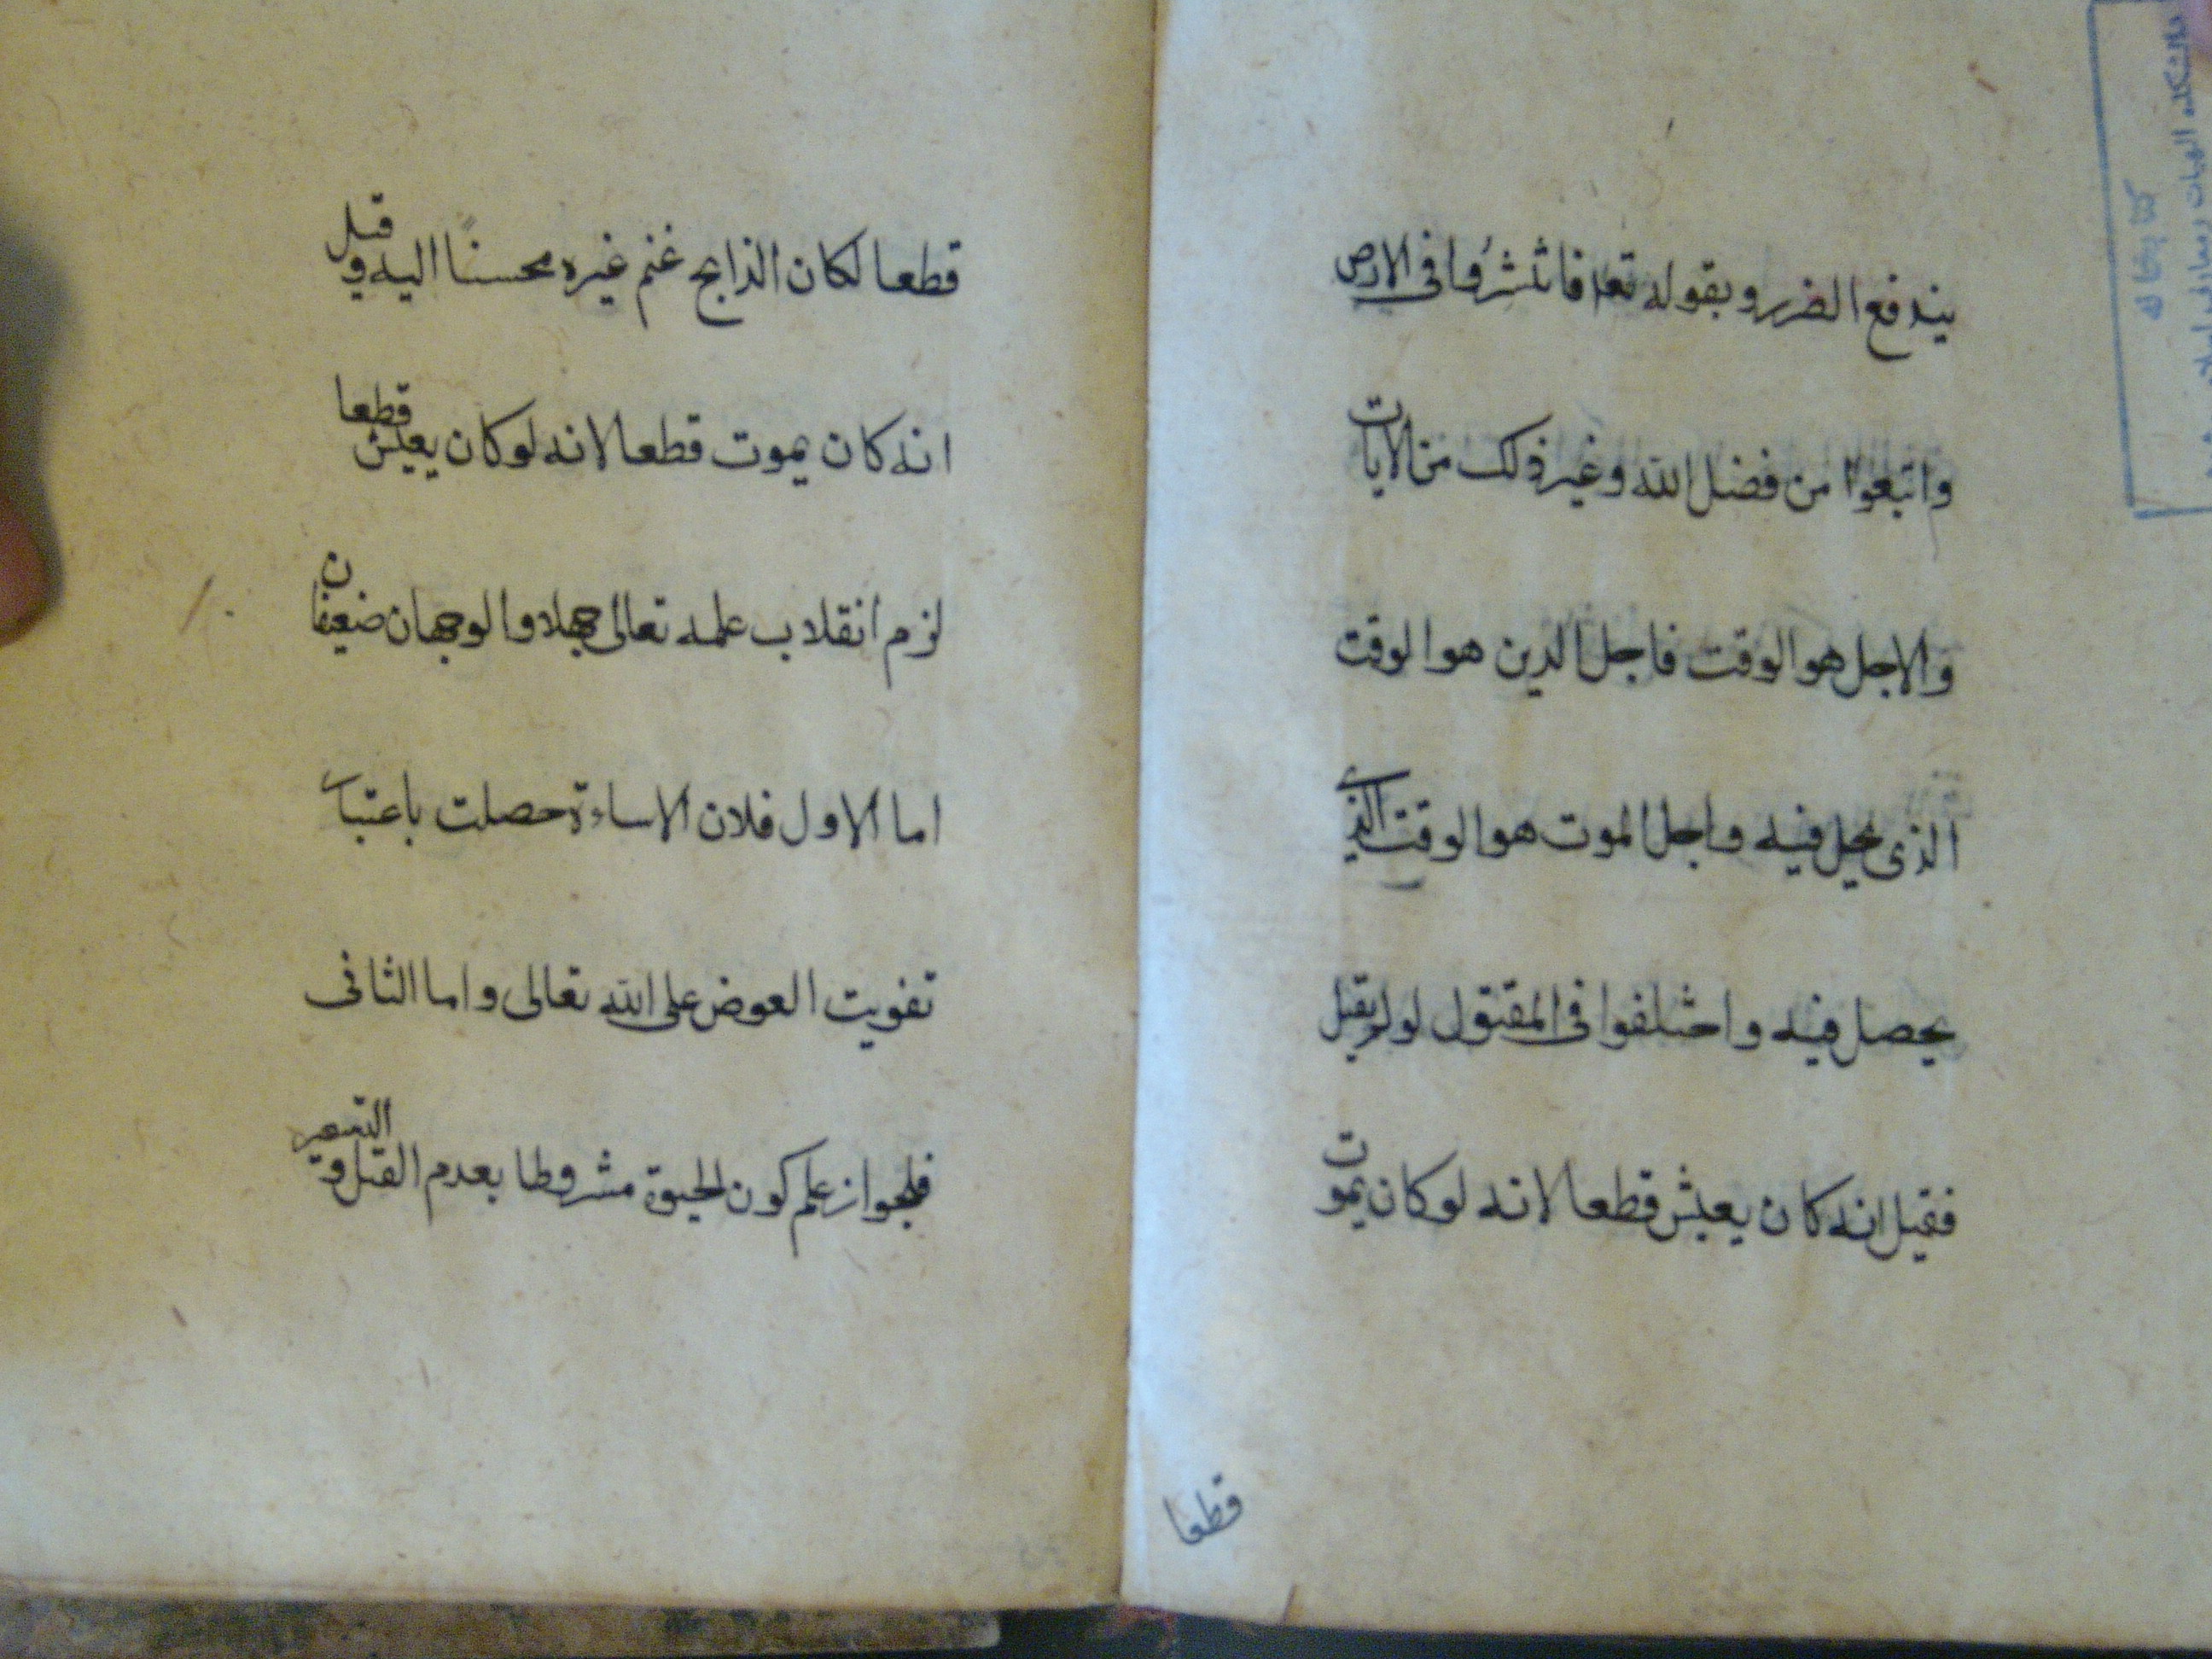 يندفع الضرر وبقوله تعا فانتشروا فى الارض
وابتغوا من فضل الله وغير ذلك من الايات
والاجل هو الوقت فاجل الدين هو الوقت
الذى يحل فيه واجل الموت هو الوقت الذى
يحصل فيه واختلفوا فى المقتول لو لم يقتل
فقيل انه كان يعيش قطعا لانه لو كان يموت
قطعا
قطعا لكان الذابح غنم غيره محسنًا اليه وقيل
انه كان يموت قطعا لانه لو كان يعيش قطعا
لزم انقلاب علمه تعالى جهلا والوجهان ضعيفان
اما الاول فلان الاساءة حصلت باعتبار
تفويت العوض على الله تعالى واما الثانى
فلجواز علم كون الحيوة مشروطا بعدم القتل و
كتابخانه